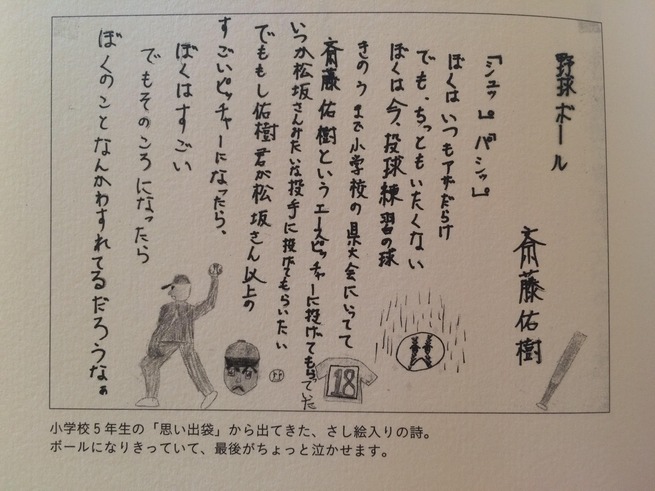 野球ボール
斎藤佑樹
『シュッ』『バシッ』
ぼくはいつもアザだらけ
でも、ちっともいたくない
ぼくは今、投球練習の球
きのうまで小学校の県大会にいってて
斎藤佑樹というエースピッチャーに投げてもらっていた
いつか松坂さんみたいな投手に投げてもらいたい
でももし佑樹君が松坂さん以上の
すごいピッチャーになったら、
ぼくはすごい
でもそのころになったら
ぼくのことなんかわすれてるだろうなぁ
18
小学校5年生の「思い出袋」から出てきた、さし絵入りの詩。
ボールになりきっていて、最後がちょっと泣かせます。